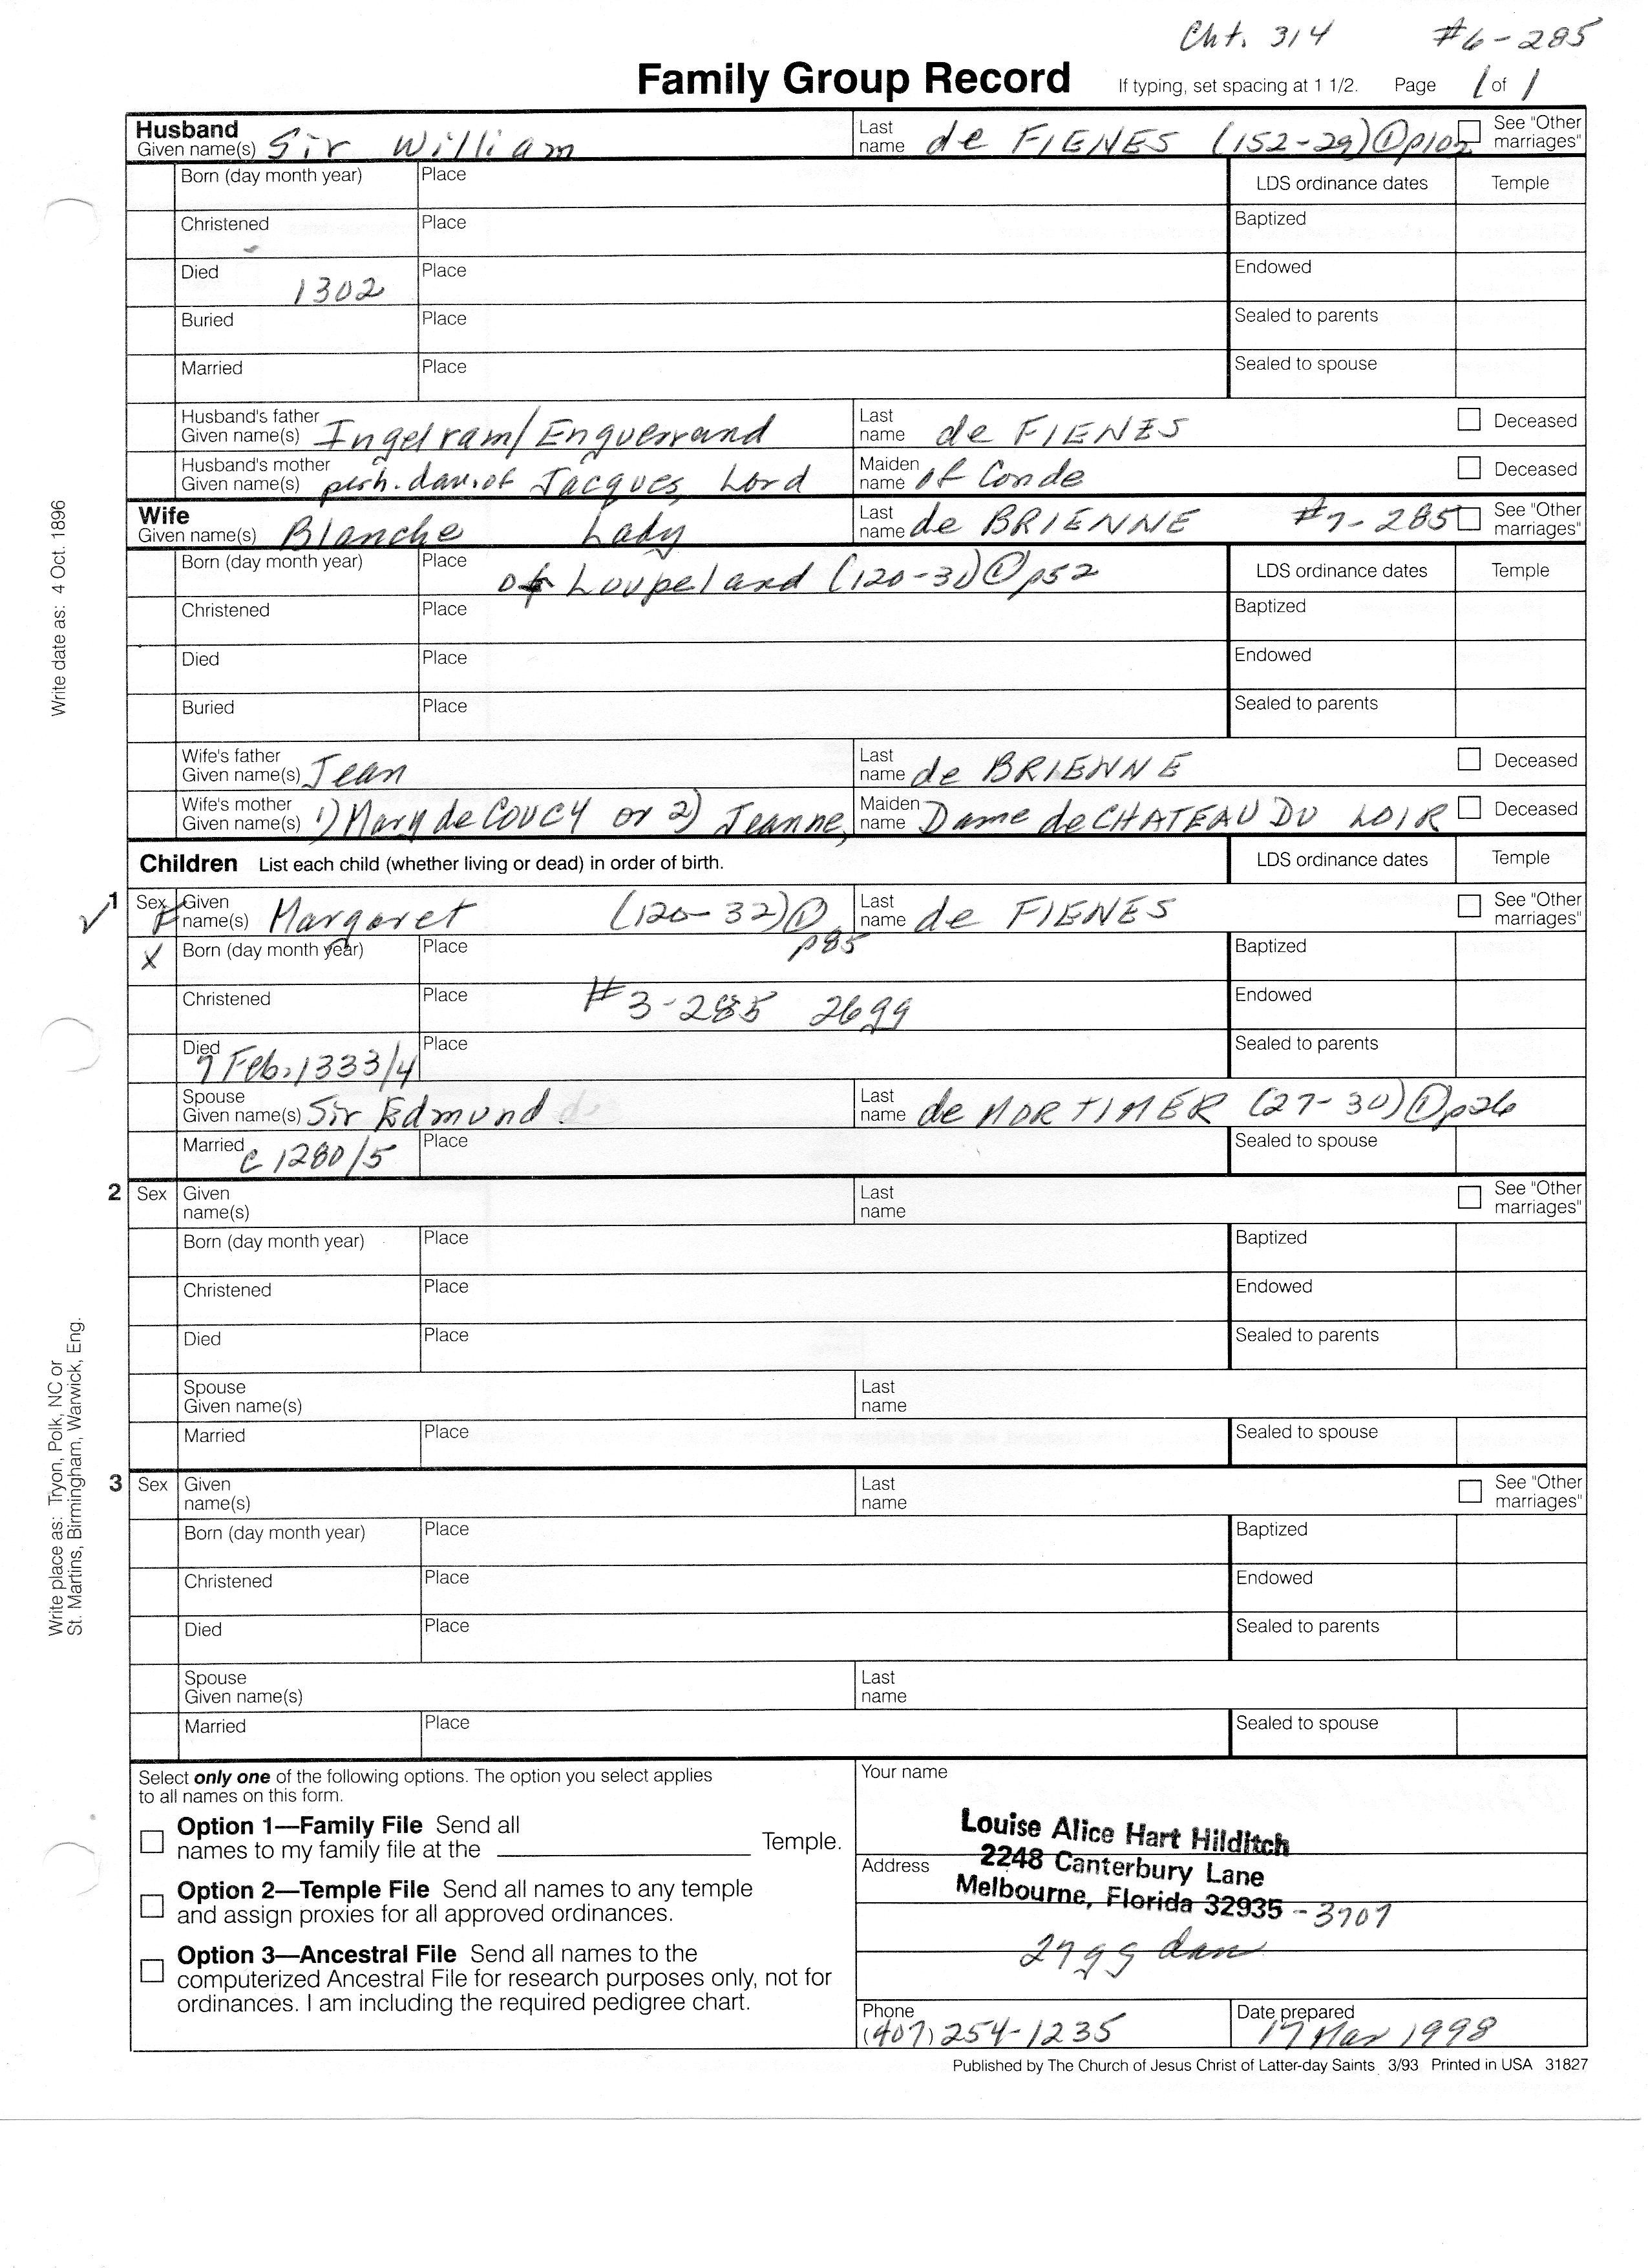 Cht. 314 #6-285
Family Group Record If typing, set spacing at 1 1/2. Page 1 of 1
Husband
Given name(s) Sir William Last name de FIENES (152-29) ① p102 See "Other marriages"
Born (day month year) Place LDS ordinance dates Temple
Christened Place Baptized
Died 1302 Place Endowed
Buried Place Sealed to parents
Married Place Sealed to spouse
Husband's father
Given name(s) Ingelram/Enguerrand Last name de FIENES Deceased
Husband's mother
Given name(s) perh. dau. of Jacques, Lord Maiden name of Conde Deceased
Wife
Given name(s) Blanche Lady Last name de BRIENNE #7-285 See "Other marriages"
Born (day month year) Place of Loupeland (120-31) ① p52 LDS ordinance dates Temple
Christened Place Baptized
Died Place Endowed
Buried Place Sealed to parents
Wife's father
Given name(s) Jean Last name de BRIENNE Deceased
Wife's mother
Given name(s) 1) Mary de COUCY or 2) Jeanne, Maiden name Dame de CHATEAU DU LOIR Deceased
Children List each child (whether living or dead) in order of birth. LDS ordinance dates Temple
1 Sex F Given name(s) Margaret (120-32) ① p85 Last name de FIENES See "Other marriages"
X Born (day month year) Place Baptized
Christened Place #3-285 26gg Endowed
Died 7 Feb. 1333/4 Place Sealed to parents
Spouse
Given name(s) Sir Edmund de Last name de MORTIMER (27-30) ① p26
Married c 1280/5 Place Sealed to spouse
2 Sex Given name(s) Last name See "Other marriages"
Born (day month year) Place Baptized
Christened Place Endowed
Died Place Sealed to parents
Spouse
Given name(s) Last name
Married Place Sealed to spouse
3 Sex Given name(s) Last name See "Other marriages"
Born (day month year) Place Baptized
Christened Place Endowed
Died Place Sealed to parents
Spouse
Given name(s) Last name
Married Place Sealed to spouse
Select only one of the following options. The option you select applies
to all names on this form.
Option 1—Family File Send all
names to my family file at the Temple.
Option 2—Temple File Send all names to any temple
and assign proxies for all approved ordinances.
Option 3—Ancestral File Send all names to the
computerized Ancestral File for research purposes only, not for
ordinances. I am including the required pedigree chart.
Your name
Louise Alice Hart Hilditch
Address 2248 Canterbury Lane
Melbourne, Florida 32935 -3707
27gg dau
Phone (407) 254-1235
Date prepared 17 Mar 1998
Published by The Church of Jesus Christ of Latter-day Saints 3/93 Printed in USA 31827
Write date as: 4 Oct. 1896
Write place as: Tryon, Polk, NC or
St. Martins, Birmingham, Warwick, Eng.